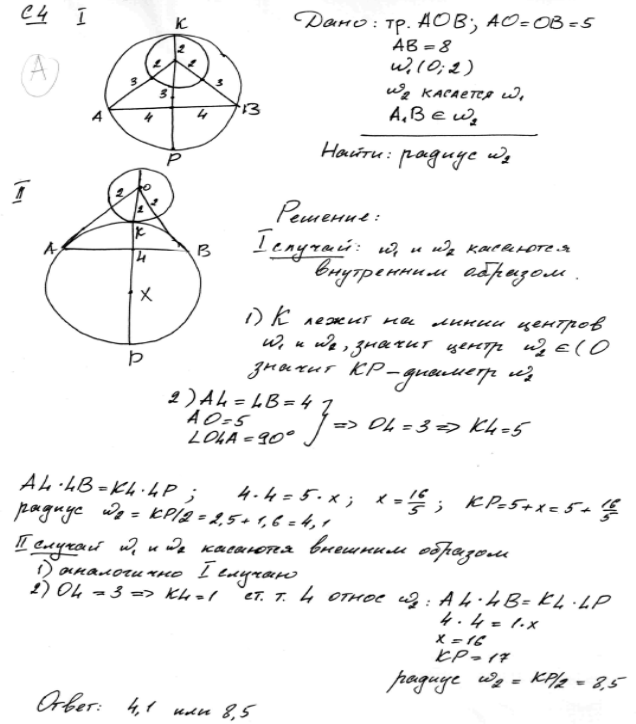 C4 I
A
K
2
2 2
3 3
3
A 4 4 B
P
Дано: тр. AOB; AO=OB=5
AB=8
w₁(O;2)
w₂ касается w₁
A,B ∈ w₂
Найти: радиус w₂
II
2 O
2
2
K
A 4 B
X
P
Решение:
I случай: w₁ и w₂ касаются
внутренним образом.
1) K лежит на линии центров
w₁ и w₂, значит центр w₂ ∈ (O
значит KP – диаметр w₂
2) AL = LB = 4
AO = 5
∠OLA = 90° } => OL = 3 => KL = 5
AL·LB = KL·LP; 4·4 = 5·x; x = 16/5; KP = 5+x = 5 + 16/5
радиус w₂ = KP/2 = 2,5 + 1,6 = 4,1
II случай w₁ и w₂ касаются внешним образом
1) аналогично I случаю
2) OL = 3 => KL = 1 ст. т. L относ w₂: AL·LB = KL·LP
4·4 = 1·x
x = 16
KP = 17
радиус w₂ = KP/2 = 8,5
Ответ: 4,1 или 8,5